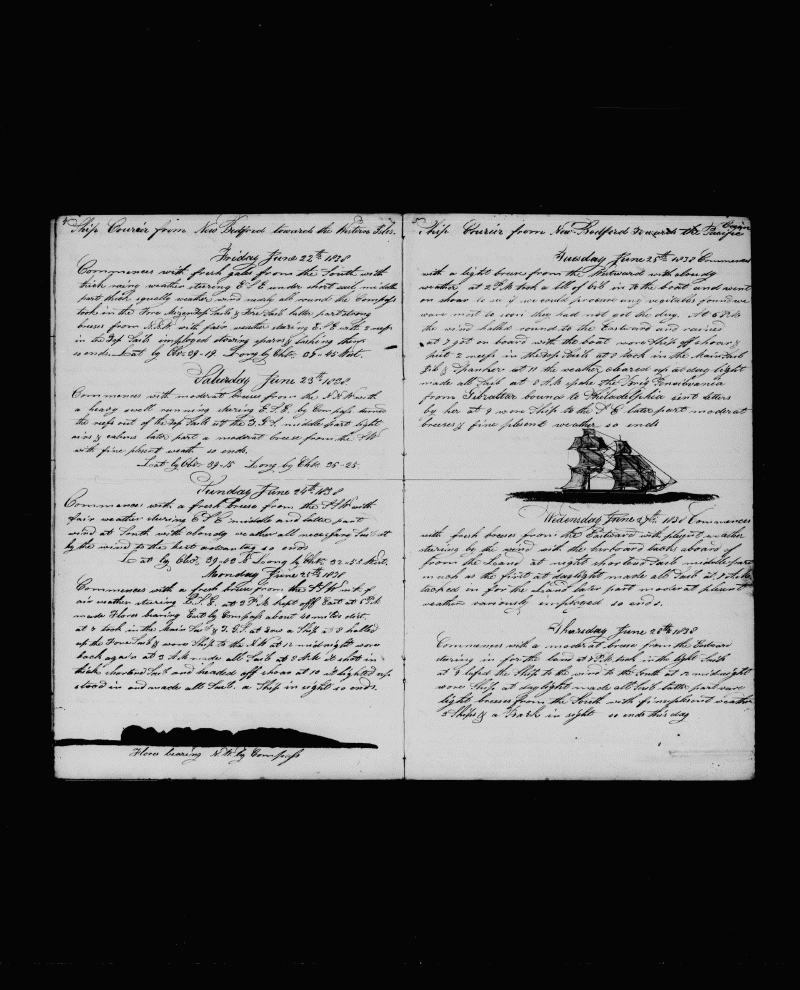 4
Ship Courier from New Bedford towards the Western Isles.
Friday June 22th 1838
Commences with fresh gales from the South with
thick rainy weather stering E S E under short sail middle
part thick squally weather wind nearly all round the Compass
took in the Fore Mizen Top Sails & Fore Sail latter part strong
breeses from N.N.E with fair weather stering E. S. E with 2 reefs
in the Top Sails employed stowing spars & lashing them
so ends. Lat by Obs. 39-19 Long by Chr. 37-45 West.
Saturday June 23th 1838
Commences with moderate breeses from the N N W with
a heavy swell running stering E. S. E. by Compass turned
the reefs out of the Top Sails set the T. G. S. middle part light
airs & calms later part a moderate breese from the SW
with fine plesent weath. so ends.
Lat by Obs. 39-15 Long by Chr. 35-25.
Sunday June 24th 1838
Commences with a fresh breese from the SSW with
fair weather stering E S E middle and latter part
wind at South with cloudy weather all necessary Sail set
by the wind to the best advantag so ends
Lat by Obs. 39-42 N Long by Chr. 32-55 West.
Monday June 25th 1838
Commences with a fresh breese from the SSW with f
air weather stering E. S. E. at 2 P.M kept off East at 6 P.M
made Flores bearing East by Compass about 40 miles dist.
at 8 took in the Main Sail & T. G. S. at saw a Ship at 8 halled
up the Fore Sail & wore Ship to the N.W at 12 midnight wore
back again at 3 A.M made all Sail at 8 A.M it shot in
thick shortend Sail and headed off shore at 10 it lighted up
stood in and made all Sail. a Ship in sight so ends
Flores bearing N. W. by Compass
5
Ship Courier from New Bedford towards the Pacific
Ocean
Tuesday June 25th 1838 Commences
with a light breese from the Westward with cloudy
weather at 2 P.M took a bll of oil in to the boat and went
on shoar to see if we could procure any vegitables found we
ware mist to soon they had not got the dug. At 6 P.M
the wind halled round to the Eastward and rained
at 7 got on board with the boat wore Ship off shoar &
put 2 reefs in the Top Sails at 8 took in the Main Sail
Jib & Spanker at 11 the weather cleared up at day light
made all Sail at 8 A.M spoke the Brig Pensilvania
from Gibralter bound to Philadelphia sent letters
by her at 9 wore Ship to the S E later part moderat
breeses & fine plesent weather so ends
Wedensday June 27th 1838 Commences
with fresh breeses from the Eastward with plesent weather
stering by the wind with the larboard tacks aboard off
from the Land at night shortend Sail middle part
much as the first at daylight made all Sail at
tacked in for the Land later part moderat plesent
weather variously employed so ends.
Thursday June 28th 1838
Commences with a moderat breese from the Eastward
stering in for the land at 7 P.M took in the light Sails
at 8 lufed the Ship to the wind to the South at 12 midnight
wore Ship at daylight made all Sail latter part ware
light breeses from the South with fine plesent weather
5 Ships & a Bark in sight so ends this day